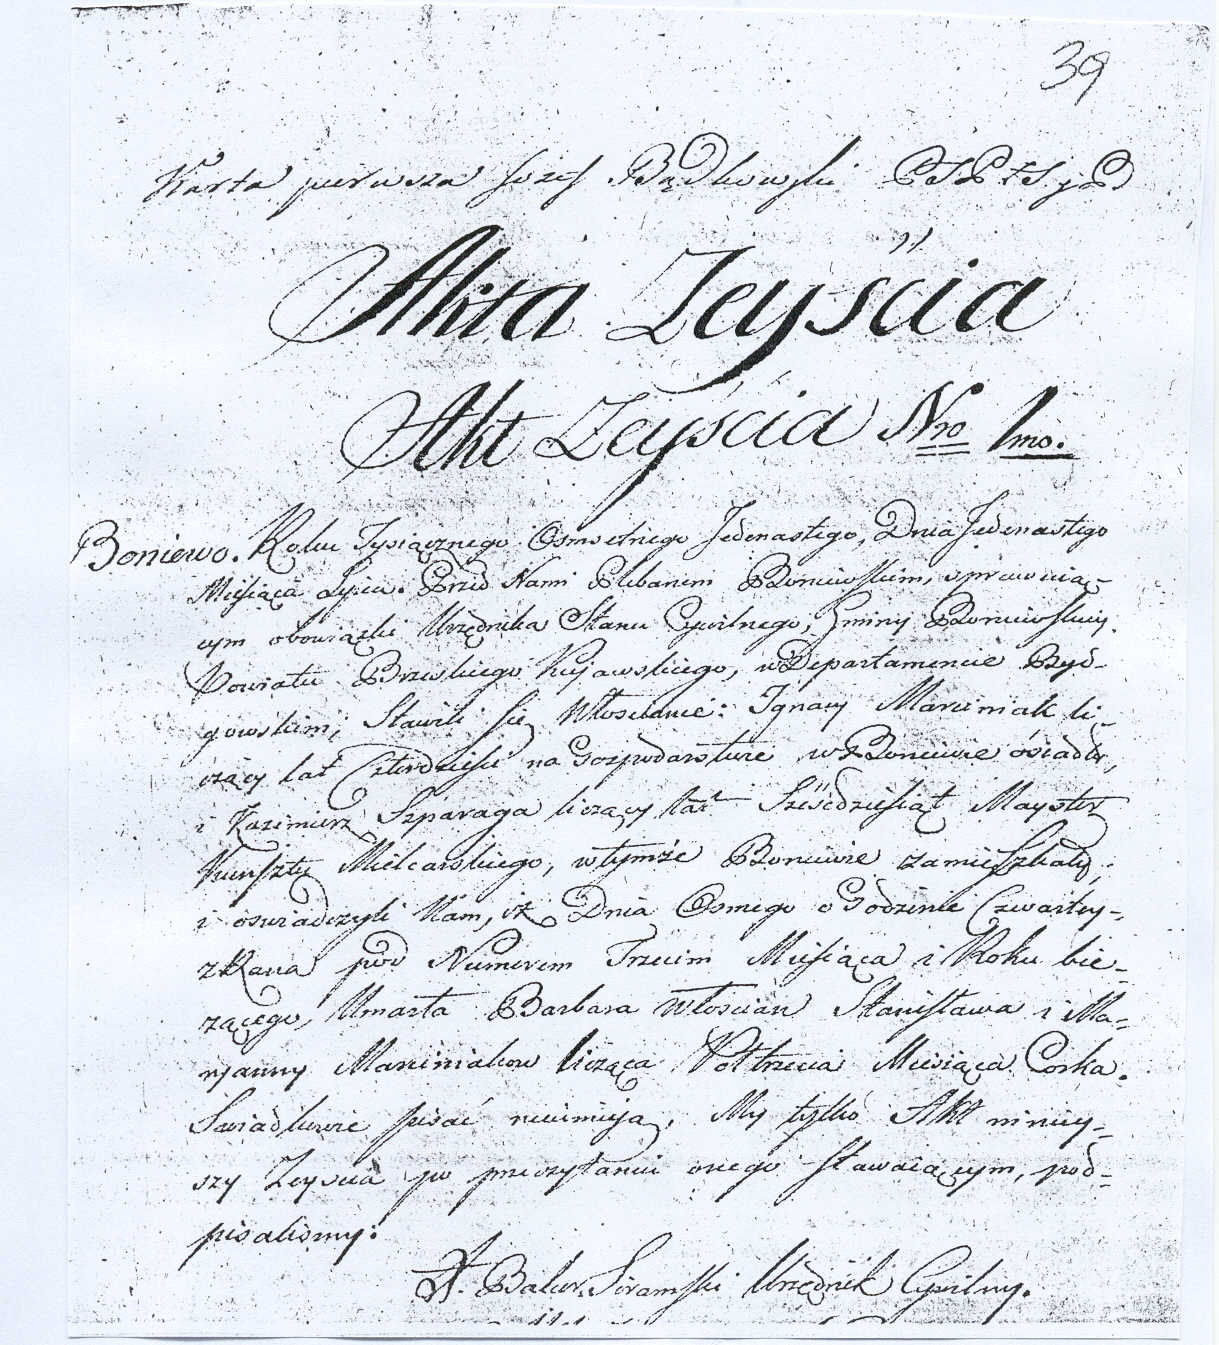 39
Karta pierwsza Jozef Bądkowski PSPtSjP
Akta Zeyścia
Akt Zeyścia Nro 1mo.
Boniewo. Roku Tysiącznego Osmsetnego Jedenastego, Dnia Jedenastego
Miesiąca Lipca. Przed Nami Plebanem Boniewskim, sprawuią-
cym obowiązki Urzędnika Stanu Cywilnego, Gminy Boniewskiey
Powiatu Brzeskiego Kujawskiego, w Departamencie Byd-
gowskim, Stawili się Włoscianie: Ignacy Marciniak li-
czący lat Czterdzieści na Gospodarstwie w Boniewie osiadły,
i Kazimierz Szparaga liczący lat Sześćdziesiąt Mayster
Kunsztu Mielcarskiego, w tymże Boniewie zamieszkały;
i oswiadczyli Nam, iż Dnia Osmego o Godzinie Czwartey-
z Rana pod Numerem Trzecim Miesiąca i Roku bie-
żącego, Umarła Barbara Włoscian Stanisława i Ma-
ryanny Marciniakow licząca Połtrzecia Miesiąca Corka.
Swiadkowie pisać nieumieją, My tylko Akt ninniey-
szy Zeyscia po przeczytaniu onego stawaiącym, pod-
pisalismy:
X. Balur. Siramski Urzędnik Cywilny.